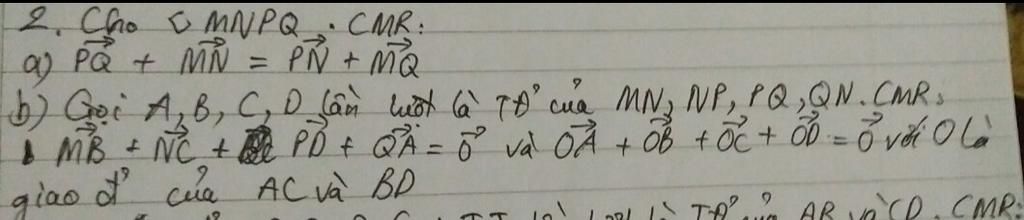 2. Cho ▱ MNPQ. CMR:
a) PQ⃗ + MN⃗ = PN⃗ + MQ⃗
b) Gọi A, B, C, D lần lượt là TĐ' của MN, NP, PQ, QN. CMR:
MB⃗ + NC⃗ + PD⃗ + QA⃗ = 0⃗ và OA⃗ + OB⃗ + OC⃗ + OD⃗ = 0⃗ với O là
giao đ' của AC và BD
là TĐ' AB và CD. CMR: